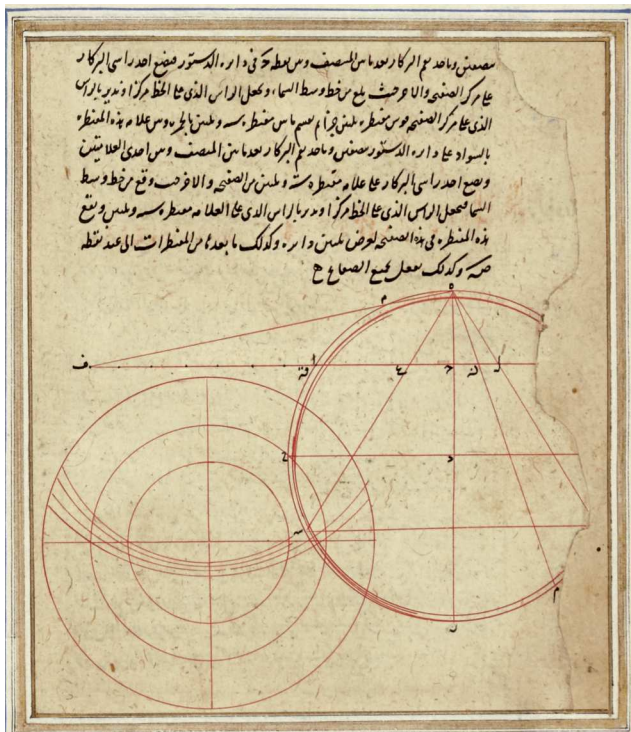 نصفين وناخذ بفم البركار بعد ما بين المنصف وبين نقطة ح في دايرة الدستور فنضع احد راسي البركار
على مركز الصفيحة والاخر حيث بلغ من خط وسط السما ونجعل الراس الذي على الخط مركزا وندير بالراس
الذي على مركز الصفيحة قوس مقنطرة ثلثين جزا ثم نقسم ما بين مقنطرة ستة وثلثين بالحمرة وبين علامة هذه المقنطرة
بالسواد على دايرة الدستور بنصفين وناخذ بفم البركار بعد ما بين المنصف وبين احدى العلامتين
ونضع احد راسي البركار على علامة مقنطرة ستة وثلثين من الصفيحة والاخر حيث وقع من خط وسط
السما فنجعل الراس الذي على الخط مركزا وندير بالراس الذي على العلامة مقنطرة ستة وثلثين وتقع
هذه المقنطرة في هذه الصفيحة لعرض ثلثين دايرة وكذلك ما بعدها من المقنطرات الى عند نقطة
وكذلك نفعل بجميع الصفايح
ه
م
ف
ع
ح
ل
د
م
ر